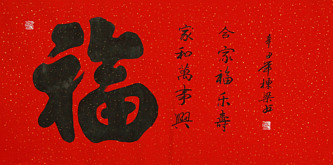 福
合家福乐寿
家和萬事興